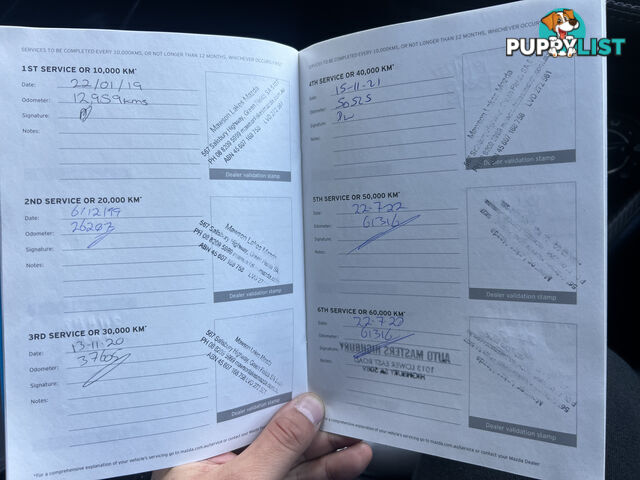 SERVICES TO BE COMPLETED EVERY 10,000KMS, OR NOT LONGER THAN 12 MONTHS, WHICHEVER OCCURS FIRST
1ST SERVICE OR 10,000 KM*
Date: 22/01/19
Odometer: 12,959kms
Signature:
Notes:
Mawson Lakes Mazda
567 Salisbury Highway, Green Fields SA
PH 08 8209 5999
ABN 45 607 168 758 LVD 272 981
Dealer validation stamp
2ND SERVICE OR 20,000 KM*
Date: 6/12/19
Odometer: 26203
Signature:
Notes:
Mawson Lakes Mazda
567 Salisbury Highway, Green Fields SA
PH 08 8209 5999
ABN 45 607 168 758 LVD 272
Dealer validation stamp
3RD SERVICE OR 30,000 KM*
Date: 13-11-20
Odometer:
Signature:
Notes:
Mawson Lakes Mazda
567 Salisbury Highway, Green Fields SA
PH 08 8209 5999
ABN 45 607 168 758 LVD 272
Dealer validation stamp
*For a comprehensive explanation of your vehicle's servicing go to mazda.com.au/service or contact your
SERVICES TO BE COMPLETED EVERY 10,000KMS, OR NOT LONGER THAN 12 MONTHS, WHICHEVER OCCURS
PUPPYLIST
4TH SERVICE OR 40,000 KM*
Date: 15-11-21
Odometer: 50525
Signature:
Notes:
Mawson Lakes Mazda
45 607 168 758 LVD 272 981
Dealer validation stamp
5TH SERVICE OR 50,000 KM*
Date: 22-7-22
Odometer: 61316
Signature:
Notes:
Dealer validation stamp
6TH SERVICE OR 60,000 KM*
Date: 22-7-22
Odometer: 61316
Signature:
Notes:
AUTO MASTERS HIGHBURY
1013 LOWER NORTH EAST ROAD
HIGHBURY SA 5089
Dealer validation stamp
*For a comprehensive explanation of your vehicle's servicing go to mazda.com.au/service or contact your Mazda Dealer